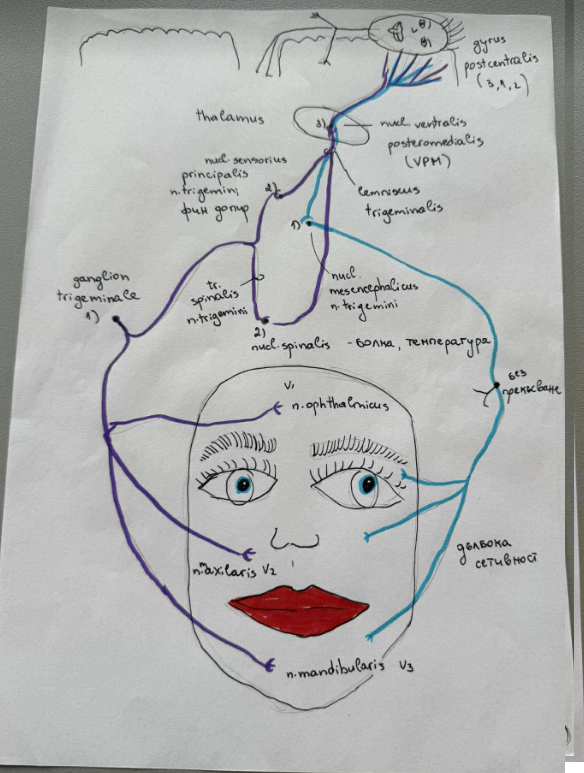 gyrus
postcentralis
(3,1,2)
thalamus
3)
nucl. ventralis
posteromedialis
(VPM)
nucl. sensorius
principalis
n.trigemini
фин допир
2)
lemniscus
trigeminalis
1)
ganglion
trigeminale
1)
tr.
spinalis
n.trigemini
nucl.
mesencephalicus
n. trigemini
2)
nucl. spinalis - болка, температура
без
прекъсване
V1
n. ophthalmicus
n.maxilaris V2
дълбока
сетивност
n. mandibularis V3